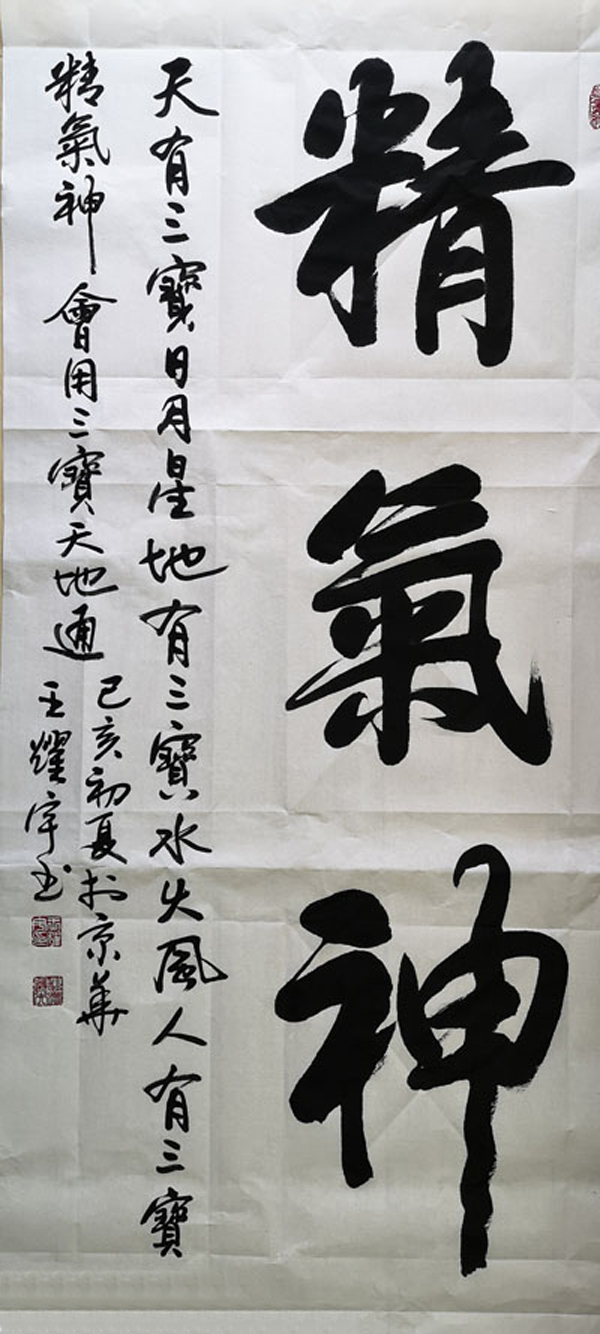 精氣神
天有三寶日月星地有三寶水火風人有三寶
精氣神會用三寶天地通
己亥初夏於京華
王耀宇书